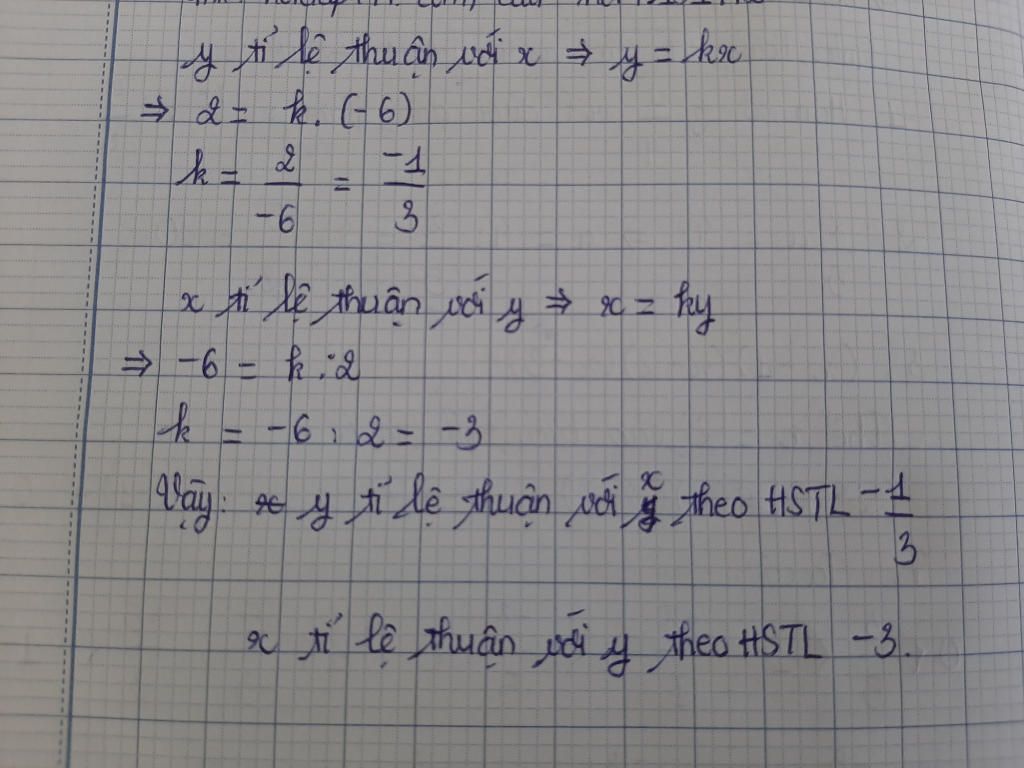 y tỉ lệ thuận với x ⇒ y = kx
⇒ 2 = k. (-6)
k = 2/-6 = -1/3
x tỉ lệ thuận với y ⇒ x = ky
⇒ -6 = k : 2
k = -6 : 2 = -3
Vậy: x y tỉ lệ thuận với x theo HSTL -1/3
x tỉ lệ thuận với y theo HSTL -3.